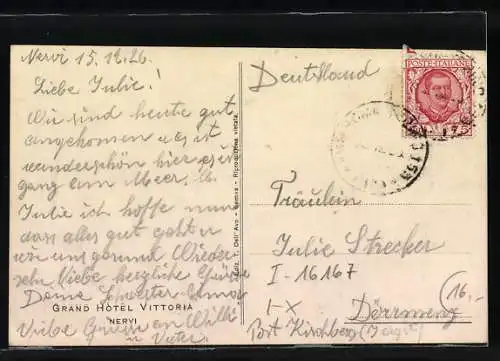 Nervi 15.12.26.
Liebe Julie!
Wir sind heute gut
angekommen u. es ist
wunderschön hier
gang am Meer. Lb.
Julie ich hoffe nun
dass alles gut geht u.
wir uns gesund Wieder-
sehn. Liebe herzliche Grüsse
Deine Schwester
Viele Grüsse an Willi
u. Vater.
GRAND HÔTEL VITTORIA
NERVI
Riproduzione vietata.
Deutschland
POSTE ITALIANE
Fräulein
Julie Strecker
I-16167
I-X
Dörrmenz
Bst Kirchberg (Jagst)
16,-